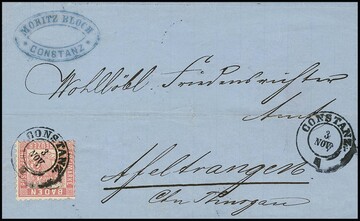 MORITZ BLOCH
CONSTANZ
Wohllöbl. Friedensrichter
Amt
Afeltrangen
Ctn Thurgau
CONSTANZ
3
NOV
CONSTANZ
3
NOV
BADEN